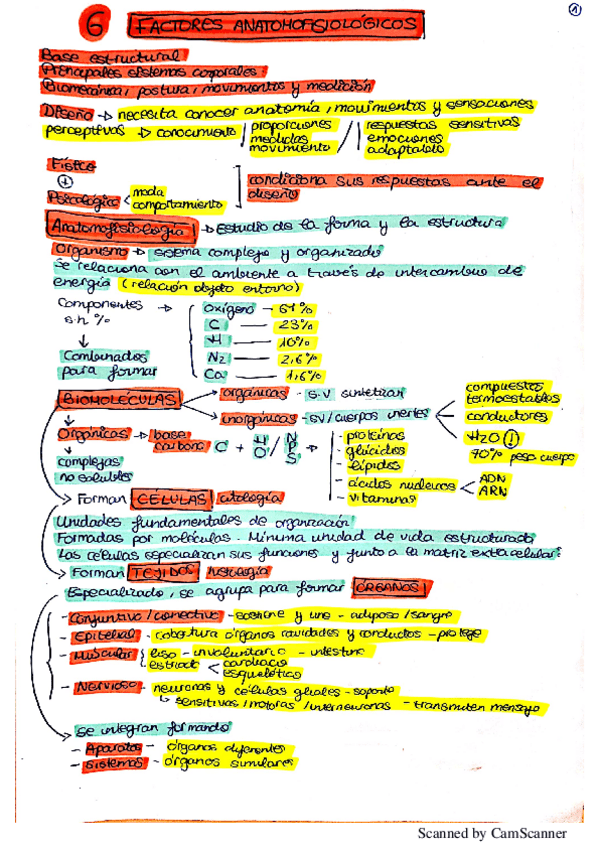 ①
6 FACTORES ANATOMOFISIOLÓGICOS
Base estructural
Principales sistemas corporales
Biomecánica, postura, movimientos y medición
Diseño → necesita conocer anatomía, movimientos y sensaciones
perceptivas → conocimiento | proporciones medidas movimiento / | respuestas sensitivas emociones adaptarlo
Físico
↓
Psicología < moda comportamiento
condiciona sus respuestas ante el diseño
Anatomofisiología → Estudio de la forma y la estructura
Organismo → sistema complejo y organizado
Se relaciona con el ambiente a través de intercambio de
energía (relación objeto entorno)
Componentes s.h % →
Oxígeno — 64%
C — 23%
H — 10%
N2 — 2,6%
Ca — 1,6%
↓
Combinados
para formar
BIOMOLÉCULAS
→ orgánicas - s.v sintetizan
→ inorgánicas - sv/cuerpos inertes <
compuestos termoestables
conductores
H2O (!)
70% peso cuerpo
↓
Orgánicas → base carbono C + H O / N P S →
↓
complejas
no solubles
- proteínas
- glúcidos
- lípidos
- ácidos nucleicos < ADN ARN
- vitaminas
→ Forman CÉLULAS citología
Unidades fundamentales de organización
Formadas por moléculas. Mínima unidad de vida estructurada
Las células especializan sus funciones y junto a la matriz extracelular:
→ Forman TEJIDOS histología
Especializado, se agrupa para formar ÓRGANOS
- Conjuntivo/conectivo - sostiene y une - adiposo/sangre
- Epitelial - cobertura órganos cavidades y conductos - protege
- Muscular { liso - involuntario - intestino
estriado < cardiaco esquelético
- Nervioso - neuronas y células gliales - soporte
↳ sensitivas/motoras/interneuronas - transmiten mensaje
→ se integran formando
- Aparatos - órganos diferentes
- Sistemas - órganos similares
Scanned by CamScanner